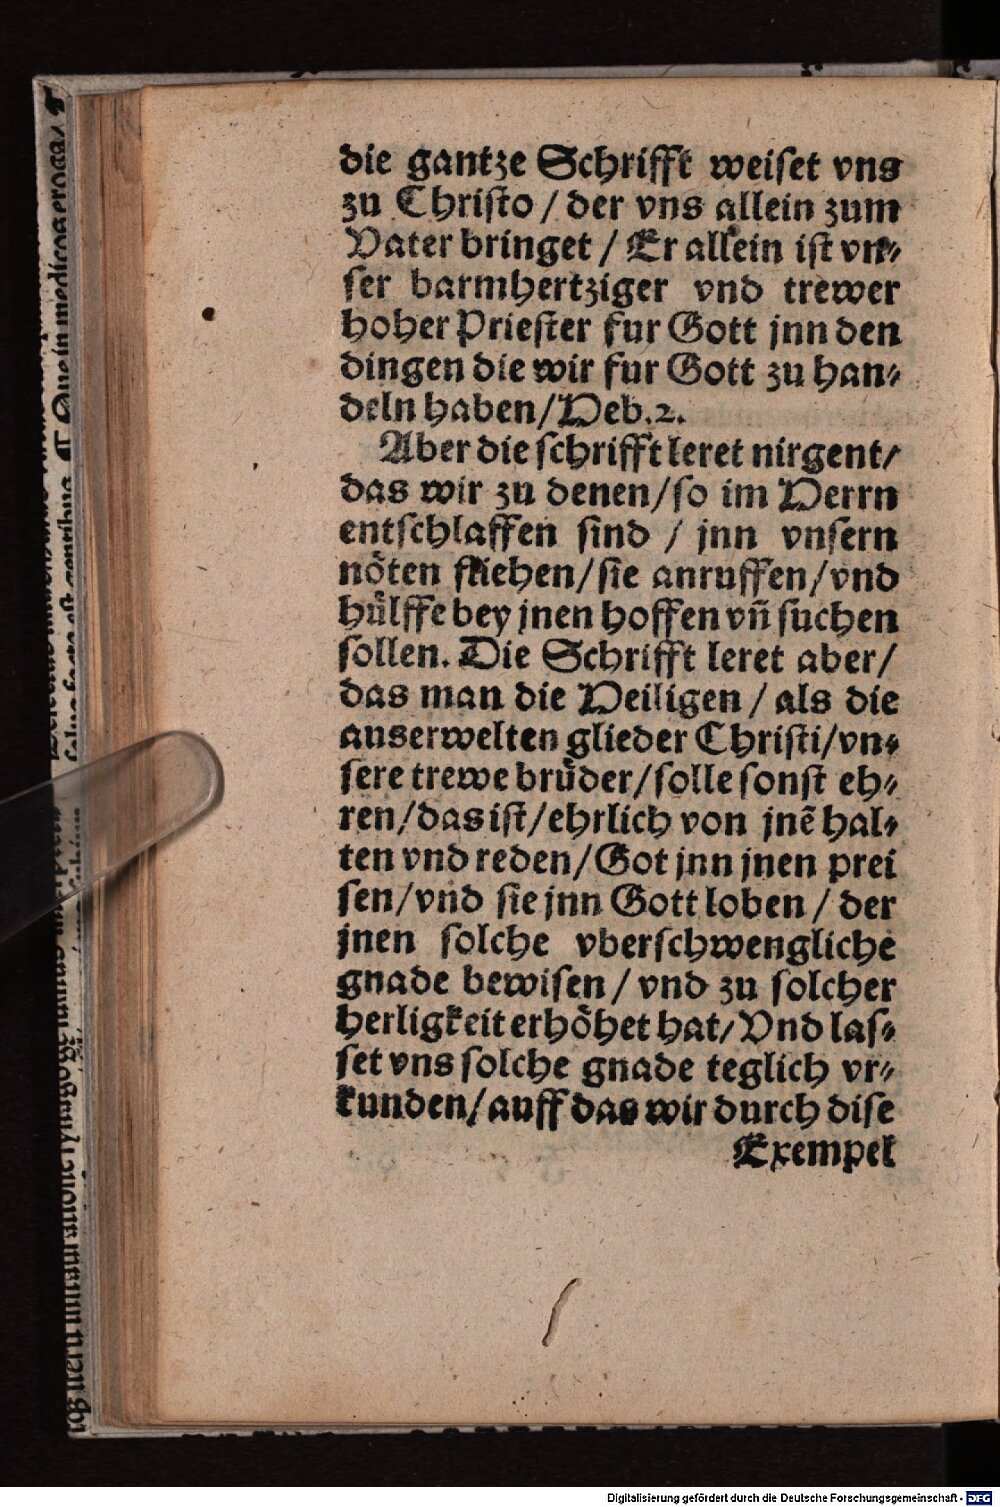 die gantze Schrifft weiset vns
zu Christo / der vns allein zum
Vater bringet / Er allein ist vn⸗
ser barmhertziger vnd trewer
hoher Priester fur Gott jnn den
dingen die wir fur Gott zu han⸗
deln haben/Heb.2.
Aber die schrifft leret nirgent/
das wir zu denen/so im Herrn
entschlaffen sind / jnn vnsern
nöten fliehen/sie anruffen/vnd
hülffe bey jnen hoffen vñ suchen
sollen. Die Schrifft leret aber/
das man die Heiligen / als die
auserwelten glieder Christi/vn⸗
sere trewe brüder/solle sonst eh⸗
ren/das ist/ehrlich von jnẽ hal⸗
ten vnd reden/Got jnn jnen prei
sen/vnd sie jnn Gott loben / der
jnen solche vberschwengliche
gnade bewisen / vnd zu solcher
herligkeit erhöhet hat/Vnd las⸗
set vns solche gnade teglich vr⸗
kunden/auff das wir durch dise
Exempel
Digitalisierung gefördert durch die Deutsche Forschungsgemeinschaft - DFG